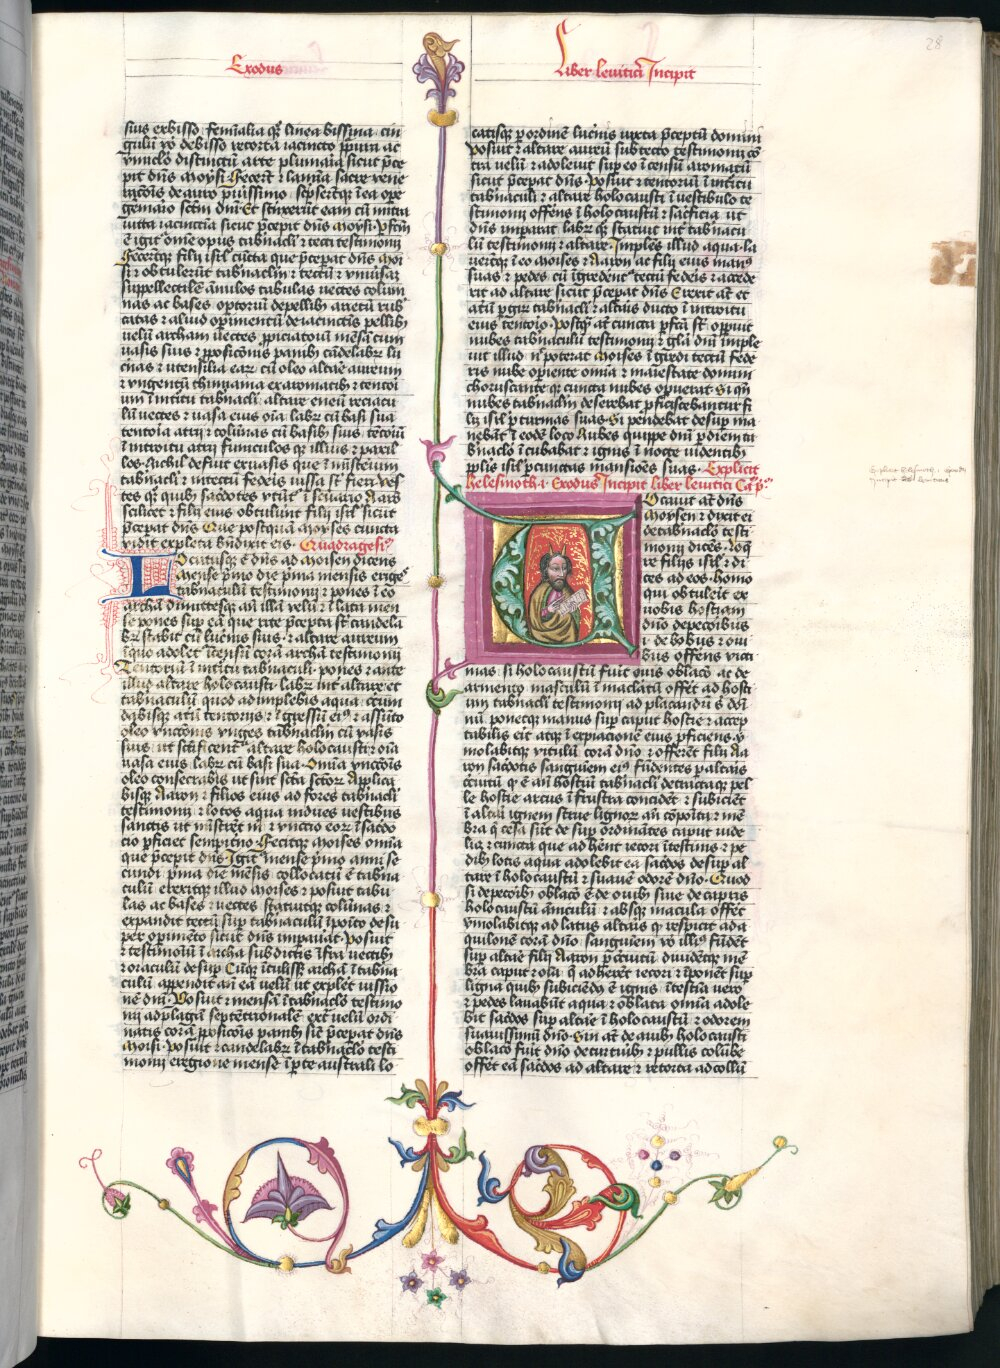 28
Exodus
Liber levitici Incipit
sius ex bisso femīalia q̄ꝫ linea bissina cin
gulū v̊o de bisso retorta iacincto ꝑpura ac
vmiclo distinctū arte plumaria sicut p̄ce
pit dn̄s moysi ffecerūt ⁊ lamīa sacre vene
de auro purissimo scpserūtqꝫ ī ea ope
gemario sctm̄ dn̄i Et stinxerūt eam cū mitra
vitta iacinctīa sicut p̄cepit dn̄s moysi
ē igit̄ om̄e opus tabnac̄li ⁊ tecti testimonij
ffecerūtqꝫ filij isrl̄ cūcta que p̄cepat dn̄s moi
si ⁊ obtulerūt tabnaclm̄ ⁊ tectū ⁊ vniuersā
suppellectilē ānulos tabulas vectes colum
nas ac bases opertoriū de pellibꝫ arietū rub
catas ⁊ aliud opimentū de iacinctīs pellibꝫ
velū archam vectes ꝓpiciatoriū mēsā cum
vasis suis ⁊ ꝓposicōnis panibꝫ cādelabꝝ lu
cnas ⁊ vtensilia eaꝝ cū oleo altare aureum
⁊ vngentū thimiama ex aromatibꝫ ⁊ tentori
um ī introitu tabnac̄li altare eneū reciacu
lū vectes ⁊ vasa eius oīa labꝝ cū basi sua
tentoria atrij ⁊ colūnas cū basibꝫ suis
ī introitu atrij funiculos qꝫ illius ⁊ paxil
los Nichil defuit ex vasis que ī misteriū
tabnac̄li ⁊ ī tectū federis iussa st̄ fieri ves
tes qꝫ quibꝫ sacdotes vtūt̄ ī sc̄uario Aarō
scilicet ⁊ filij eius obtulerunt filij isrl̄ sicut
p̄cepat dn̄s Que postquā moyses cuncta
vidit expleta bn̄dixit eis Quadragesīꝰ
Locutusqꝫ ē dn̄s ad moisen dicens
Mense p̄mo die p̄ma mensis eriges
tabnaculū testimonij ⁊ pones ī eo
archā dimittesqꝫ an̄ illā velū ⁊ illata men
sa pones sup eā que rite p̄cepta st̄ candela
bꝝ stabit cū lucnis suis ⁊ altare aureum
ī quo adolet̄ īcensū corā archa testimonij
Tentoriū ī introitu tabnac̄li pones ⁊ ante
illud altare holocausti labꝝ int̄ altare et
tabnaculū quod ad implebis aqua ccum
dabisqꝫ atriū tentorijs ⁊ īgressū eiꝰ ⁊ assūto
oleo vnctōnis vnges tabnaclm̄ cū vasis
suis ut sctificent̄ altare holocausti ⁊ oīa
vasa eius labꝝ cū basi sua Omīa vnctōis
oleo consecrabis ut sint scta sctoꝝ Applica
bisqꝫ Aaron ⁊ filios eius ad fores tabnac̄li
testimonij ⁊ lotos aqua indues vestibus
sanctis ut mīstrēt m̄ ⁊ vnctio eoꝝ ī sacdo
cio ꝓficiet sempitn̄o ffecitqꝫ moises omīa
que p̄cepit dn̄s Igit̄ mense p̄mo anni se
cundi p̄ma die mēsis collocatū ē tabna
culū erexitqꝫ illud moises ⁊ posuit tabu
las ac bases ⁊ vectes statuitqꝫ colūnas ⁊
expandit tectū sup tabnaculū īposito desu
per opimēto sicut dn̄s impauat Posuit
⁊ testimoniū ī archa subdictis īfra vectibꝫ
⁊ oraculū desup Cūqꝫ ītulissꝫ archā ī tabna
culū appendit an̄ eā velū ut explet̄ iussio
nē dn̄i Posuit ⁊ mensā ī tabnac̄lo testimo
nij ad plagā septētrionalē ext̄ velū ordi
natis corā ꝓposicōis panibꝫ sic̄ p̄cepat dn̄s
Moisi Posuit ⁊ candelabꝝ ī tabnac̄lo testi
monij e regione mense ī pte australi lo
catisqꝫ ꝑ ordinē lucnis iuxta p̄ceptū domini
Posuit ⁊ altare aureū sub tecto testimonij cō
tra velū ⁊ adoleuit sup eo īcensū aromatū
sicut p̄cepat dn̄s Posuit ⁊ tentoriū ī introitu
tabnaculi ⁊ altare holocausti ī vestibulo te
stimonij offerens ī holocaustū ⁊ sacficia ut
dn̄s imparat labꝝ qꝫ statuit int̄ tabnacu
lū testimonij ⁊ altare Implēs illud aqua La
ueritqꝫ ī eo moises ⁊ Aaron ac filij eius manꝰ
suas ⁊ pedes cū īgredent̄ tectū federis ⁊ accede
rēt ad altare sicut p̄cepat dn̄s Erexit at̄ et
atriū ꝑ girū tabnac̄li ⁊ altaris ducto ī introitu
eius tentorio Postqꝫ at̄ cuncta ꝑfcā st̄ opuit
nubes tabnaculū testimonij ⁊ gl̄ia dn̄i imple
uit illud nec poterat Moises īgredi tectū fede
ris nube operiente omīa ⁊ maiestate domini
choruscante qꝫ cuncta nubes opuerat Si qn̄
nubes tabnaclm̄ deserebat ꝓficiscebantur fi
lij isrl̄ ꝑ turmas suas Si pendebat desup ma
nebāt ī eodē loco Nubes quippe dn̄i ꝑ diem ta
bnaclo īcubabat ⁊ ignis ī nocte videntibꝫ
pplis isrl̄ ꝑ cunctas mansiōes suas Explicit
helesmoth i Exodus Incipit liber leuitici Ca pm
Vocauit at̄ dn̄s
Moysen ⁊ dixit ei
de tabnac̄lo testi
monij dicēs Loqꝫ
re filijs isrl̄ ⁊ di
ces ad eos Homo
qui obtulerit ex
uobis hostiam
dn̄o de pecoribus
i de bobus ⁊ oui
bus offerens victi
mas si holocaustū fuit eius oblaco ac de
armento masculū īmaclatū offeret ad hosti
um tabnac̄li testimonij ad placandū s̄ domi
nū ponetqꝫ manus sup caput hostie ⁊ accep
tabilis erit atqꝫ ī expiacionē eius ꝓficiens Im
molabitqꝫ vitulū corā dn̄o ⁊ offerēt filij Aa
ron sacdotis sanguīem eiꝰ fūdentes ꝑ altaris
ccuitū qꝫ ē an̄ hostiū tabnac̄li detractaqꝫ pel
le hostie artus ī frustra concidēt ⁊ subicient
ī altari ignem strue lignoꝝ an̄ cōposita ⁊ mē
bra qꝫ cesa sūt desup ordinātes caput vide
licꝫ ⁊ cuncta que adherēt iecori ītestinis ⁊ pe
dibꝫ lotis aqua adolebit ea sacdos desup al
tare ī holocaustū ⁊ suauē odorē dn̄o Quod
si de pecoribꝫ oblacō ē de ouibꝫ siue de capris
holocaustū āniculū ⁊ absqꝫ macula offeret
ymolabitqꝫ ad latus altaris qꝫ respicit ad a
quilonē corā dn̄o sanguīem vō illiꝰ fūdēt
sup altare filij Aaron ꝑ ccuitū diuidētqꝫ mē
bra caput ⁊ oīa qꝫ adherēt iecori ⁊ īponēt sup
ligna quibꝫ subiciēdꝰ ē ignis ītestīa vero
⁊ pedes lauabūt aqua ⁊ oblata omīa adole
bit sacdos sup altare ī holocaustū ⁊ odorem
suauissimū dn̄o Sin at̄ de auibꝫ holocausti
oblacō fuit dn̄o de turturibꝫ ⁊ pullis colūbe
offeret eā sacdos ad altare ⁊ retorto ad collū
Explicit helesmoth i Exodus
Incipit Leuiticus